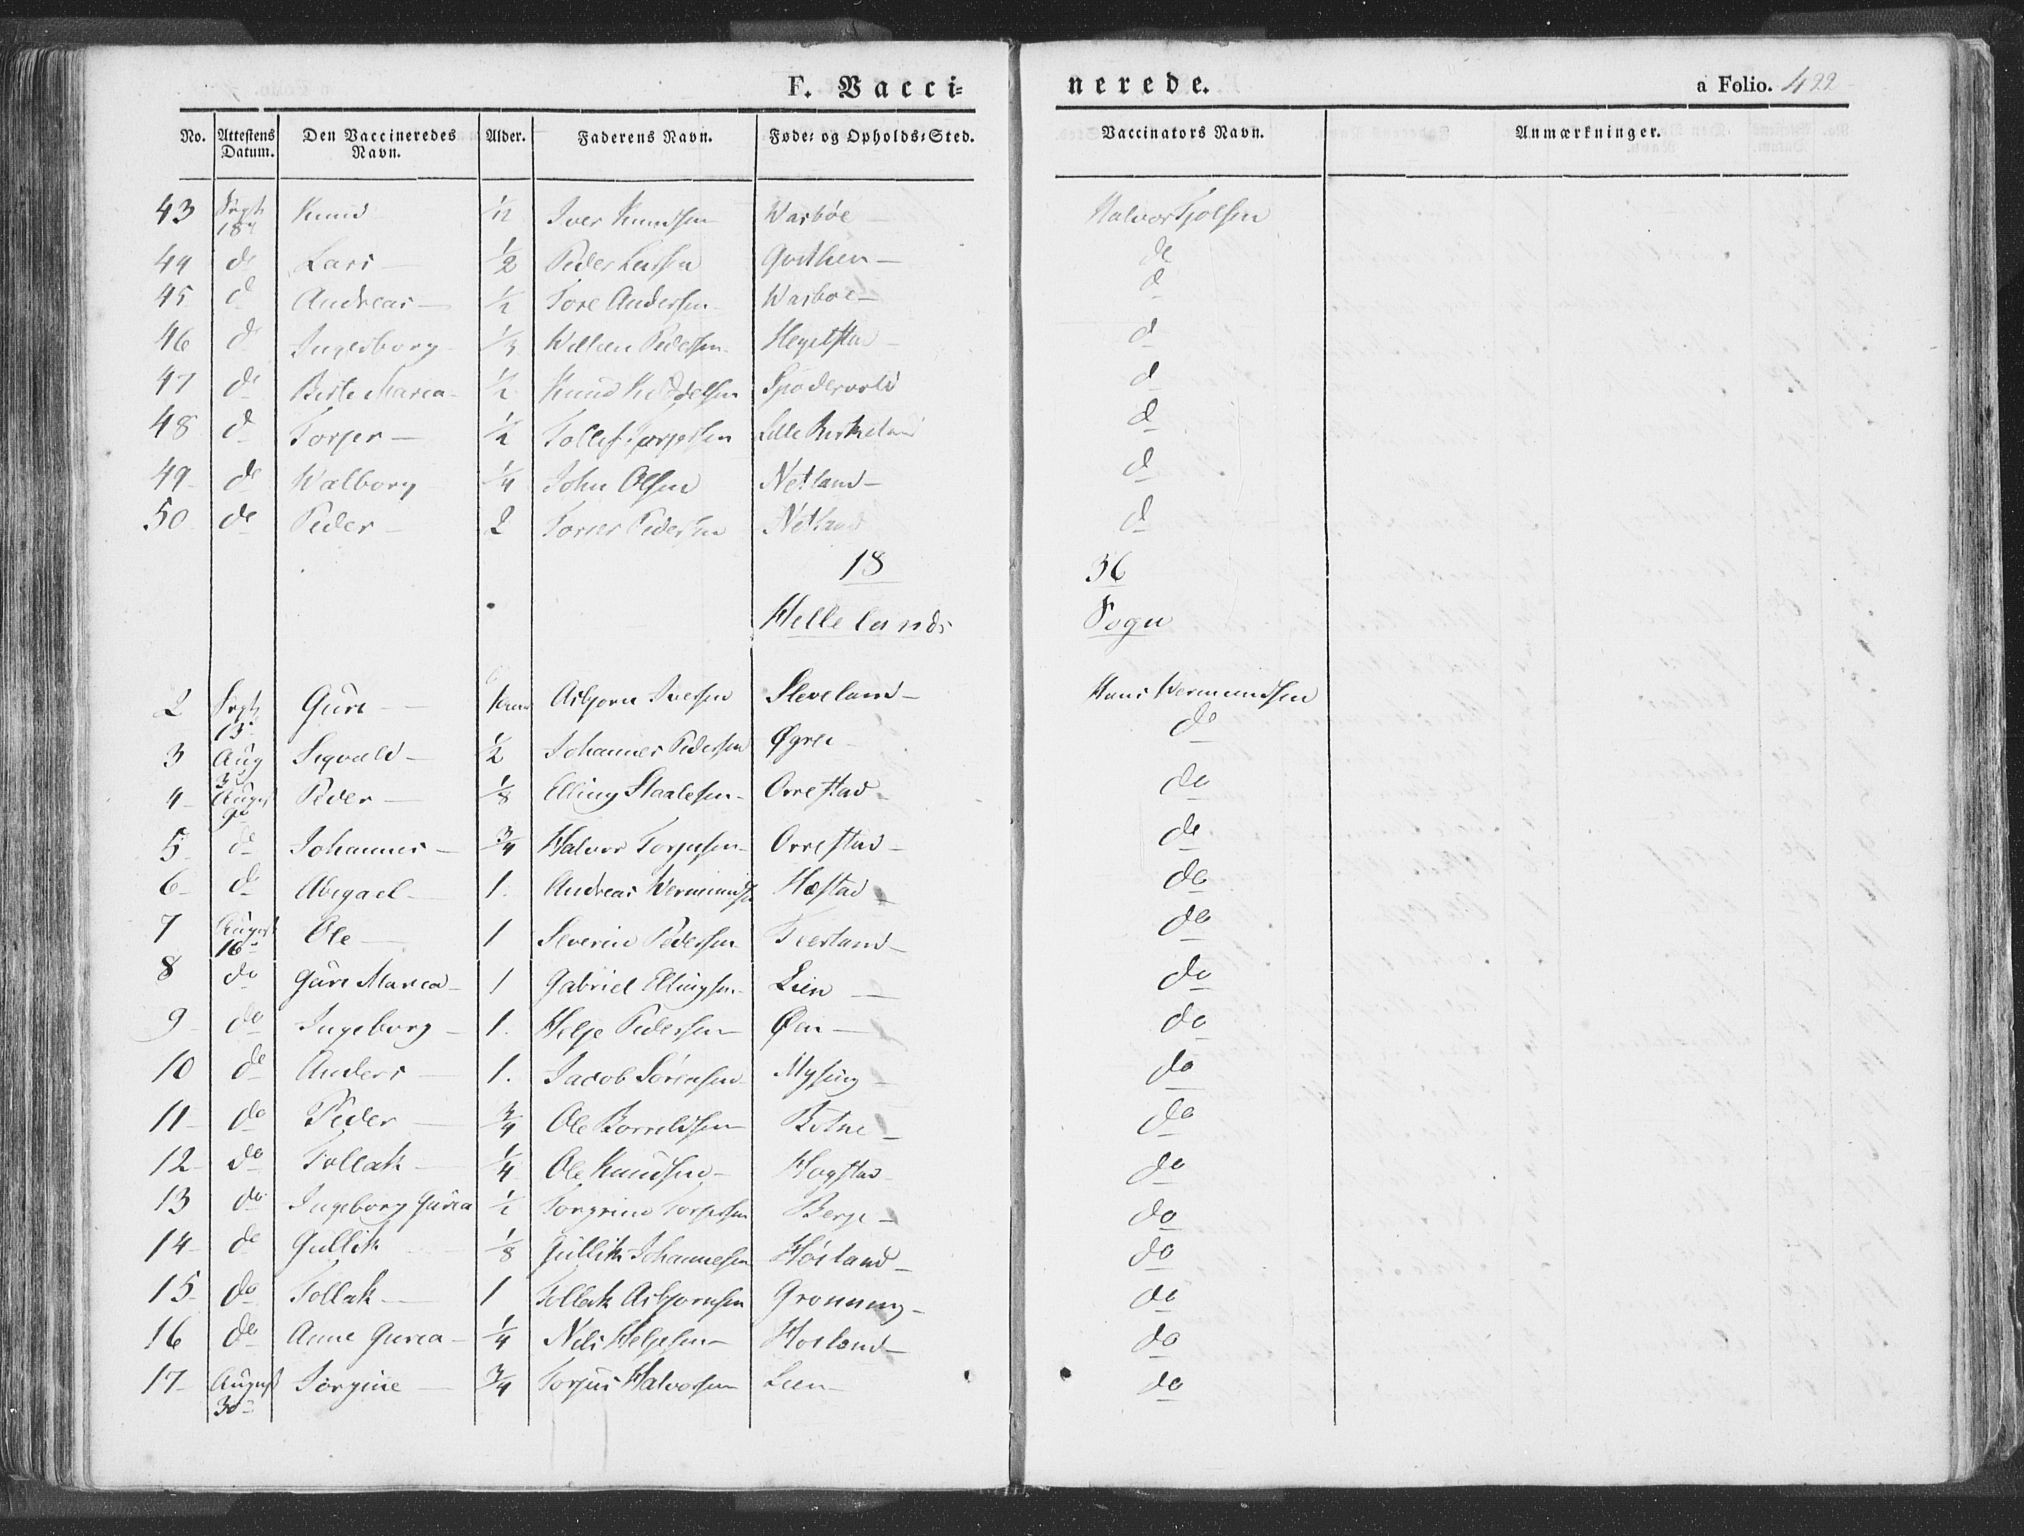 F. Vacci= nerede. a Folio. 422
No. Attestens Datum. Den Vaccineredes Navn. Alder. Faderens Navn. Føde= og Opholds=Sted. Vaccinators Navn. Anmærkninger.
43 Sept 18 Knud 1/12 Iver Knudsen Warbøe Halvor
44 do Lars 1/2 Peder Larsen do
45 d Andreas 1/2 Tore Andersen Warboe d
46 do Ingeborg 1/3 Pedersen Hegelstad d
47 do Berte Maria 1/2 Knud d
48 d Torger 1/2 Tollef Torgersen Lille Birkeland d
49 do Walborg 1/4 John Olsen Netland d
50 do Peder 2 Pedersen Netland d
18 36
Hellelands Sogn
2 Sept 13 Guri Asbjorn Iversen Sleveland Hans Wermundsen
3 Aug Sigvald 1/2 Johannes Pedersen Øgrei do
4 August 9 Peder 1/8 Elling Staalesen Orrestad do
5 do Johannes 3/4 Halvor Torgersen Orrestad do
6 do Abigael 1. Andreas Wermunds Hæstad do
7 August 16 Ole 1 Severin Pedersen do
8 do Guri Maria 1 Gabriel Ellingsen Lien do
9 do Ingeborg 1. Helje Pedersen Øen do
10 do Anders 1. Jacob Sørensen Mysing do
11 do Peder 3/4 Ole Botne do
12 do Tollak 1/4 Ole Knudsen Hogstad do
13 do Ingeborg Guria 1/2 Torgrim Torgersen Berge do
14 do Gullik 1/8 Gullik Johannesen Høiland do
15 do Tollak 1 Tollak Asbjornsen Gronning do
16 do Anne Guria 1/4 Nils Heljesen Hoiland do
17 August 30 Torgine 3/4 Torjus Halvorsen Lien do